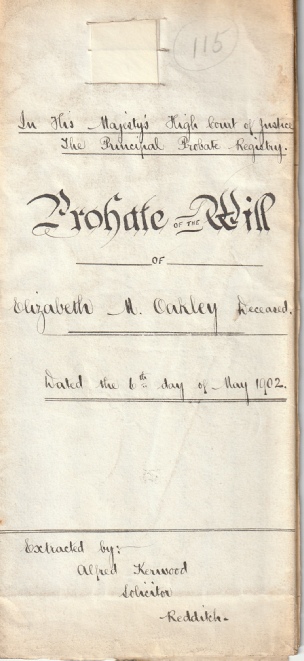 115
In His Majesty's High Court of Justice
The Principal Probate Registry.
Probate OF THE Will
OF
Elizabeth M. Oakley Deceased.
Dated the 6th day of May 1902.
Extracted by:-
Alfred Kerwood
Solicitor
Redditch.